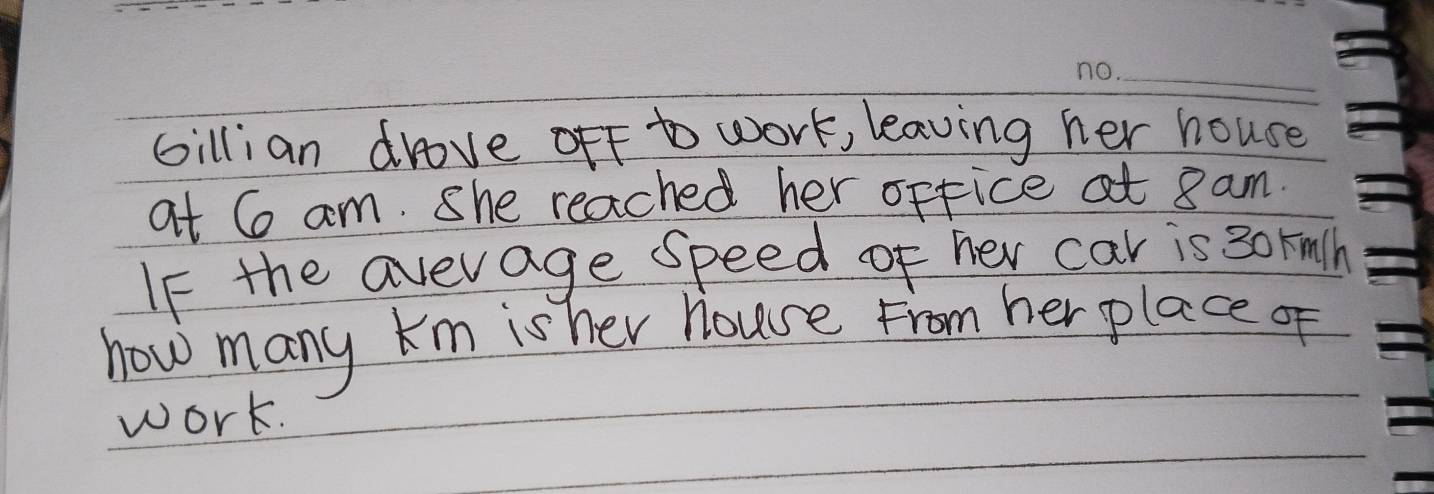 no.
Gillian drove off to work, leaving her house
at 6 am. She reached her office at 8 am.
If the average speed of her car is 30 km/h
how many km is her house from her place of
work.